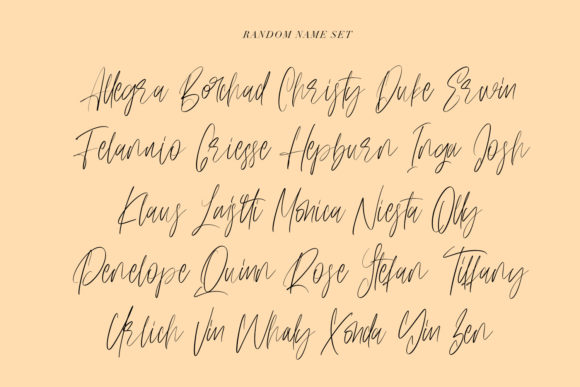 RANDOM NAME SET
Allegra Borchad Christy Duke Erwin
Felannio Griesse Hepburn Inga Josh
Klaus Monica Niesta Olly
Penelope Quinn Rose Stefan Tiffany
Urlich Vin Whaly Xonda Yin Zen